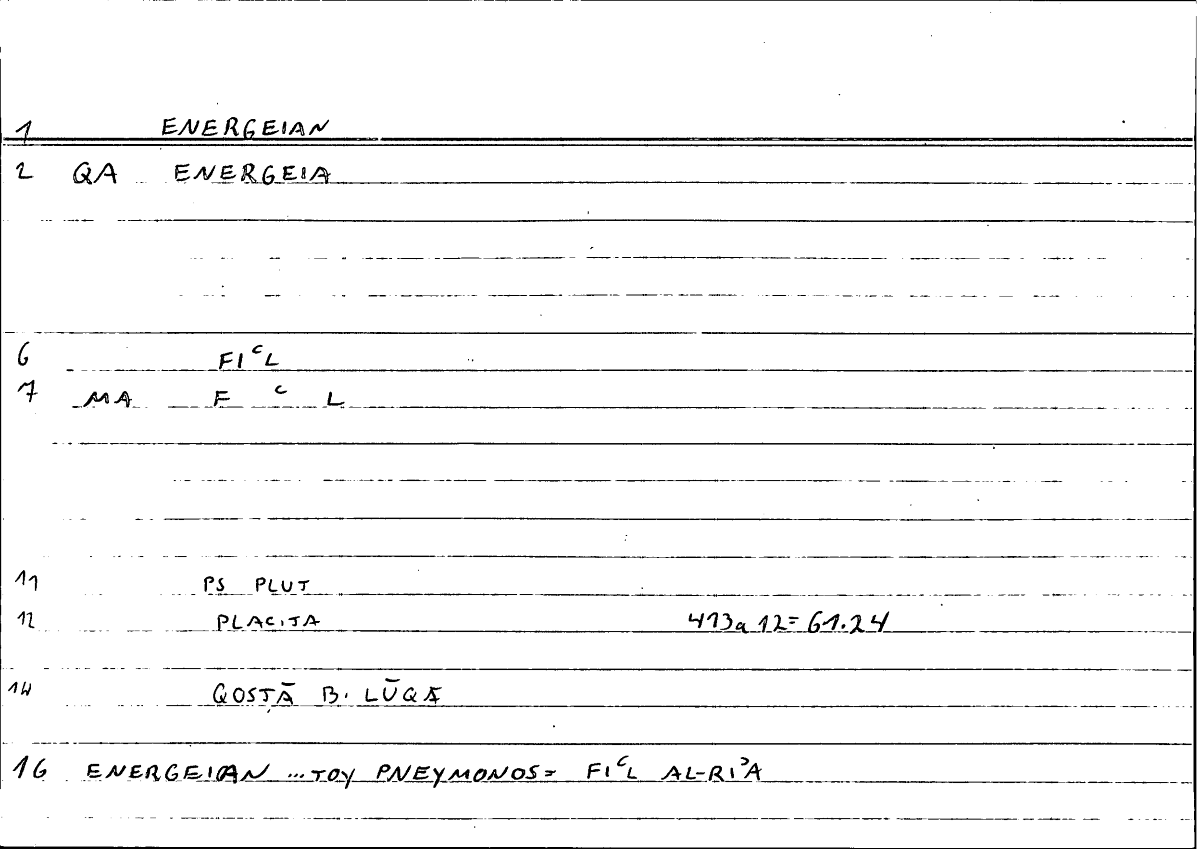 1 ENERGEIAN
2 QA ENERGEIA
6 FIᶜL
7 MA F ᶜ L
11 PS PLUT
12 PLACITA 413a 12 = 61.24
14 QOSṬĀ B. LŪQĀ
16 ENERGEIAN ... TOY PNEYMONOS = FIᶜL AL-RIʾA